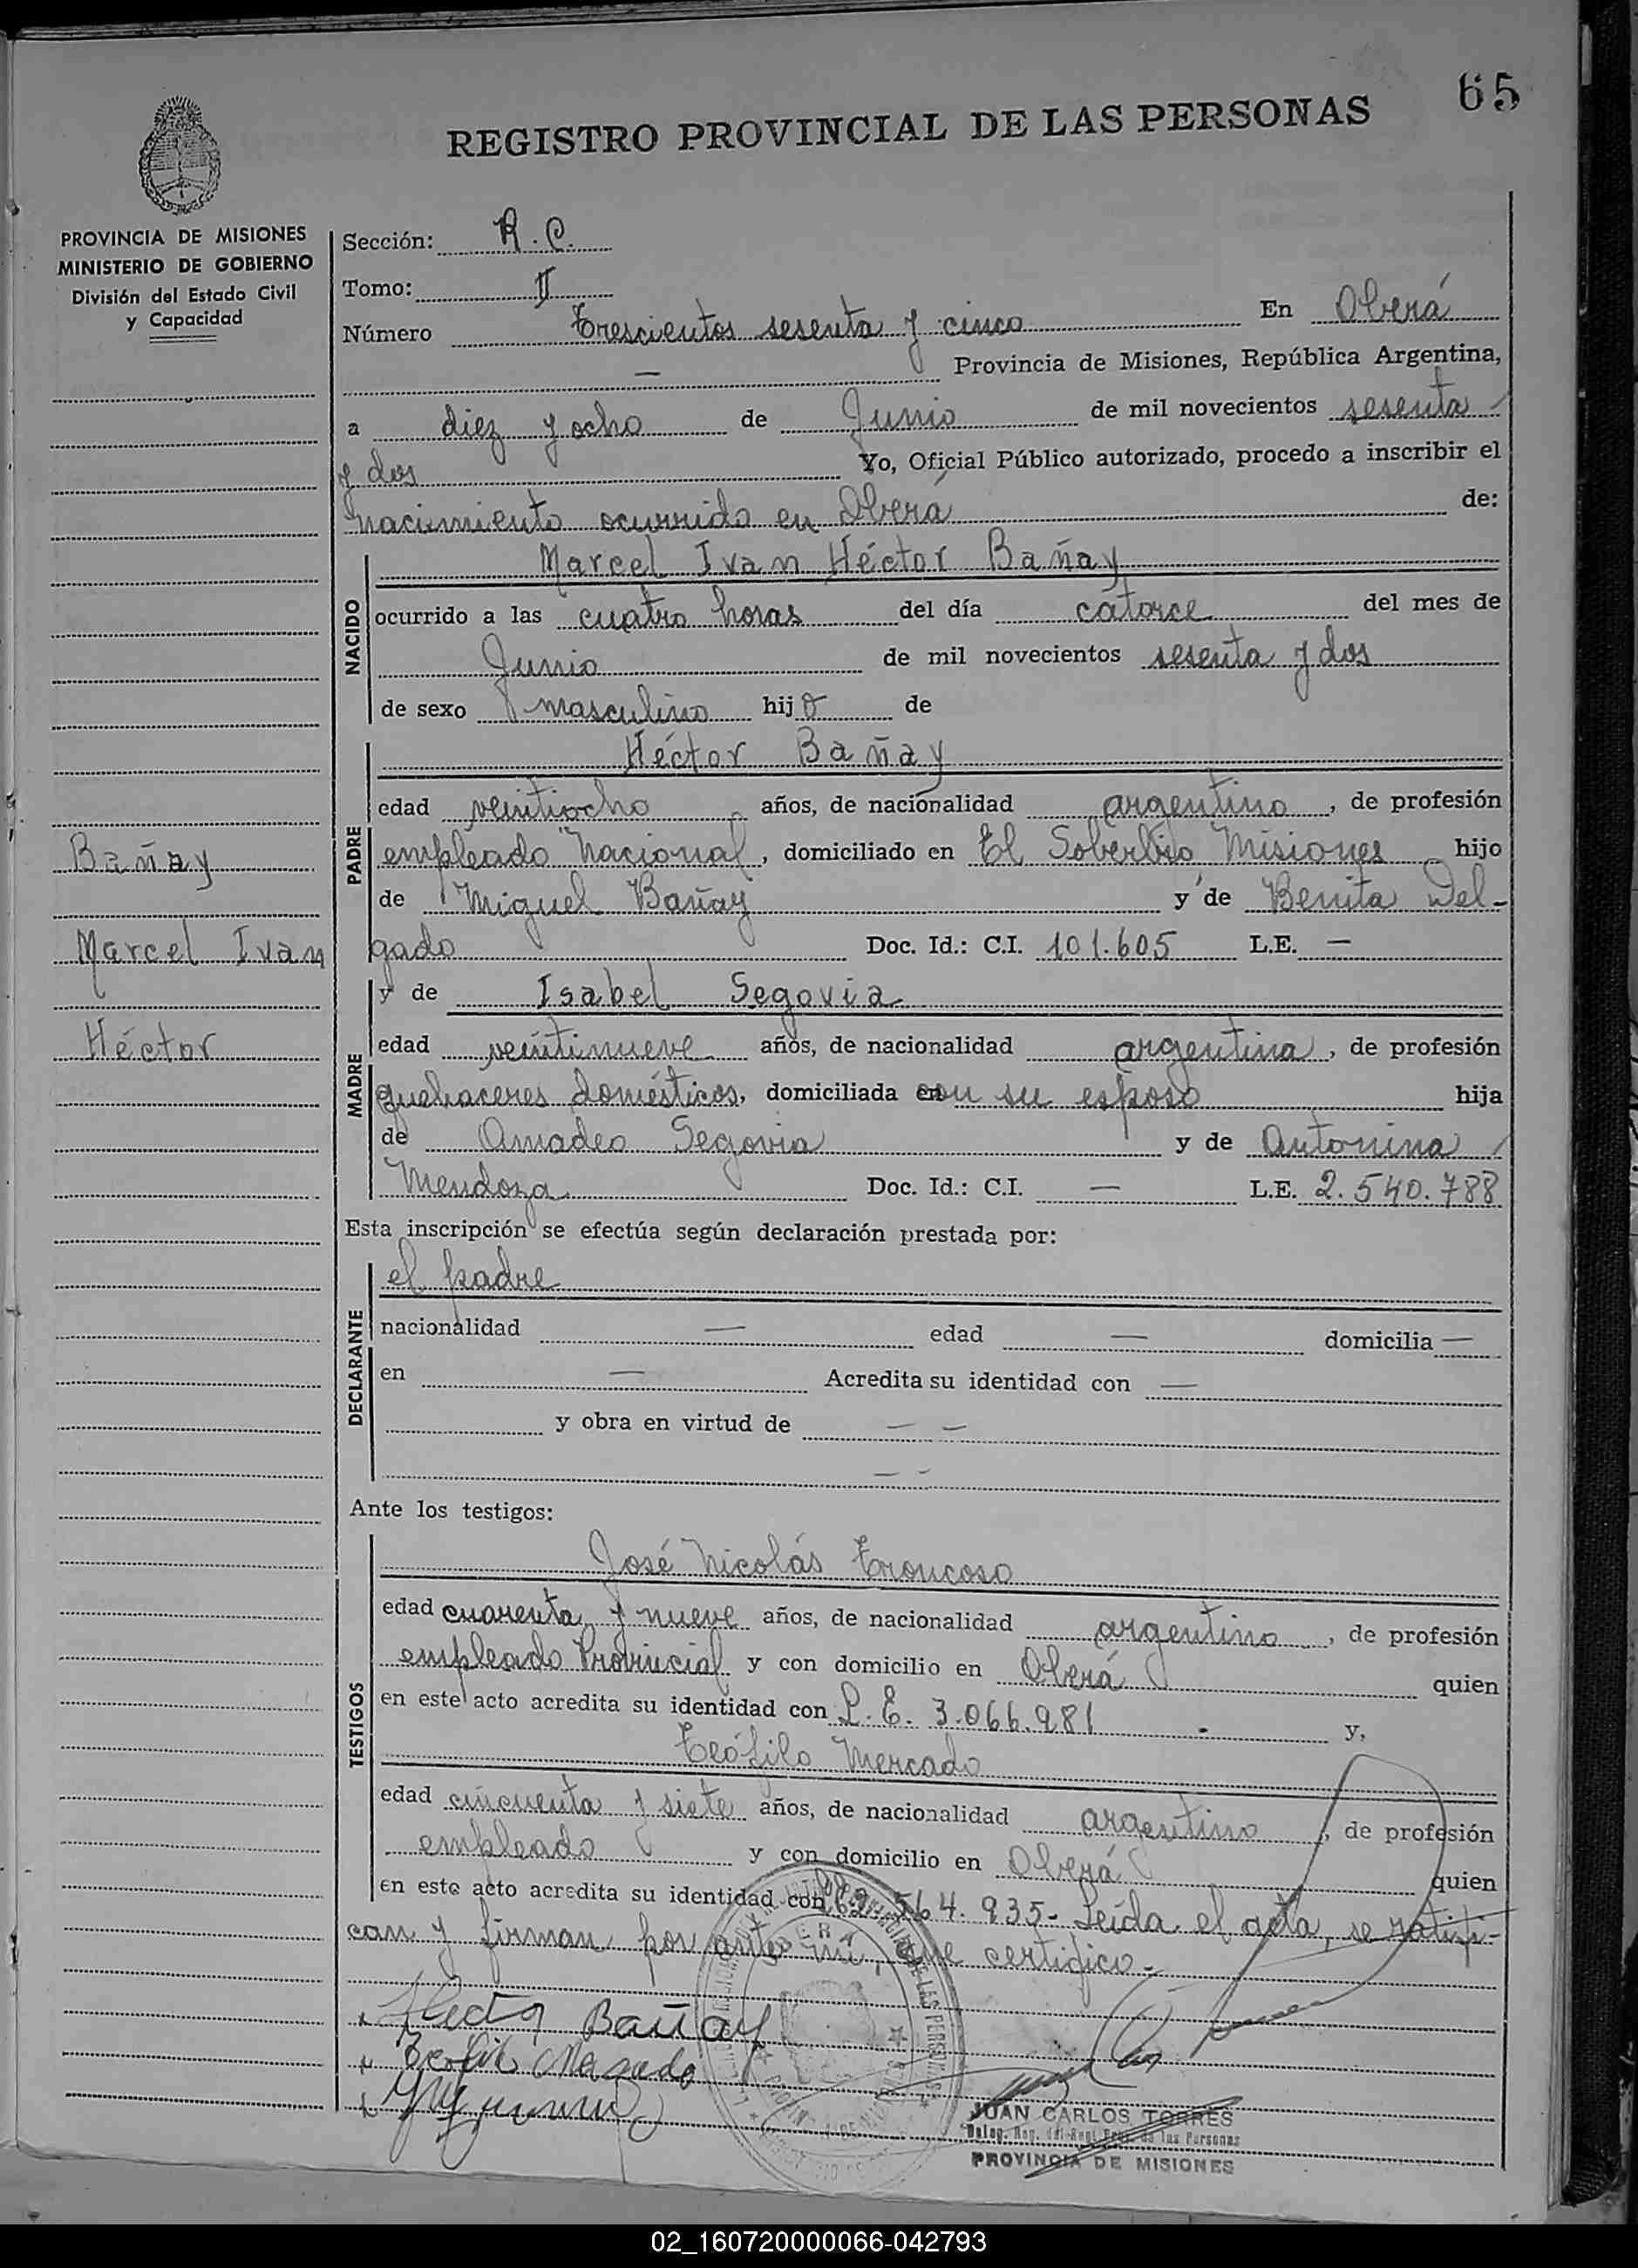 65
REGISTRO PROVINCIAL DE LAS PERSONAS
PROVINCIA DE MISIONES
MINISTERIO DE GOBIERNO
División del Estado Civil
y Capacidad
Bañay
Marcel Ivan
Héctor
Sección: R. C.
Tomo: II
Número Trescientos sesenta y cinco En Oberá
— Provincia de Misiones, República Argentina,
a diez y ocho de Junio de mil novecientos sesenta
y dos Yo, Oficial Público autorizado, procedo a inscribir el
nacimiento ocurrido en Oberá de:
NACIDO
Marcel Ivan Héctor Bañay
ocurrido a las cuatro horas del día catorce del mes de
Junio de mil novecientos sesenta y dos
de sexo masculino hijo de
PADRE
Héctor Bañay
edad veintiocho años, de nacionalidad argentino, de profesión
empleado Nacional, domiciliado en El Soberbio Misiones hijo
de Miguel Bañay y de Benita Del-
gado Doc. Id.: C.I. 101.605 L.E. —
MADRE
y de Isabel Segovia
edad veintinueve años, de nacionalidad argentina, de profesión
quehaceres domésticos, domiciliada con su esposo hija
de Amadeo Segovia y de Antonina
Mendoza Doc. Id.: C.I. — L.E. 2.540.788
Esta inscripción se efectúa según declaración prestada por:
DECLARANTE
el padre
nacionalidad — edad — domicilia —
en — Acredita su identidad con —
y obra en virtud de — —
— —
Ante los testigos:
TESTIGOS
José Nicolás Troncoso
edad cuarenta y nueve años, de nacionalidad argentino, de profesión
empleado Provincial y con domicilio en Oberá quien
en este acto acredita su identidad con L. E. 3.066.981 y,
Teófilo Mercado
edad cincuenta y siete años, de nacionalidad argentino, de profesión
empleado y con domicilio en Oberá quien
en este acto acredita su identidad con 564.935- Leída el acta, se ratifi-
can y firman por ante mi, que certifico.-
Hector Bañay
Teofilo Mercado
JUAN CARLOS TORRES
Deleg. Reg. del Reg. Prov. de las Personas
PROVINCIA DE MISIONES
02_160720000066-042793